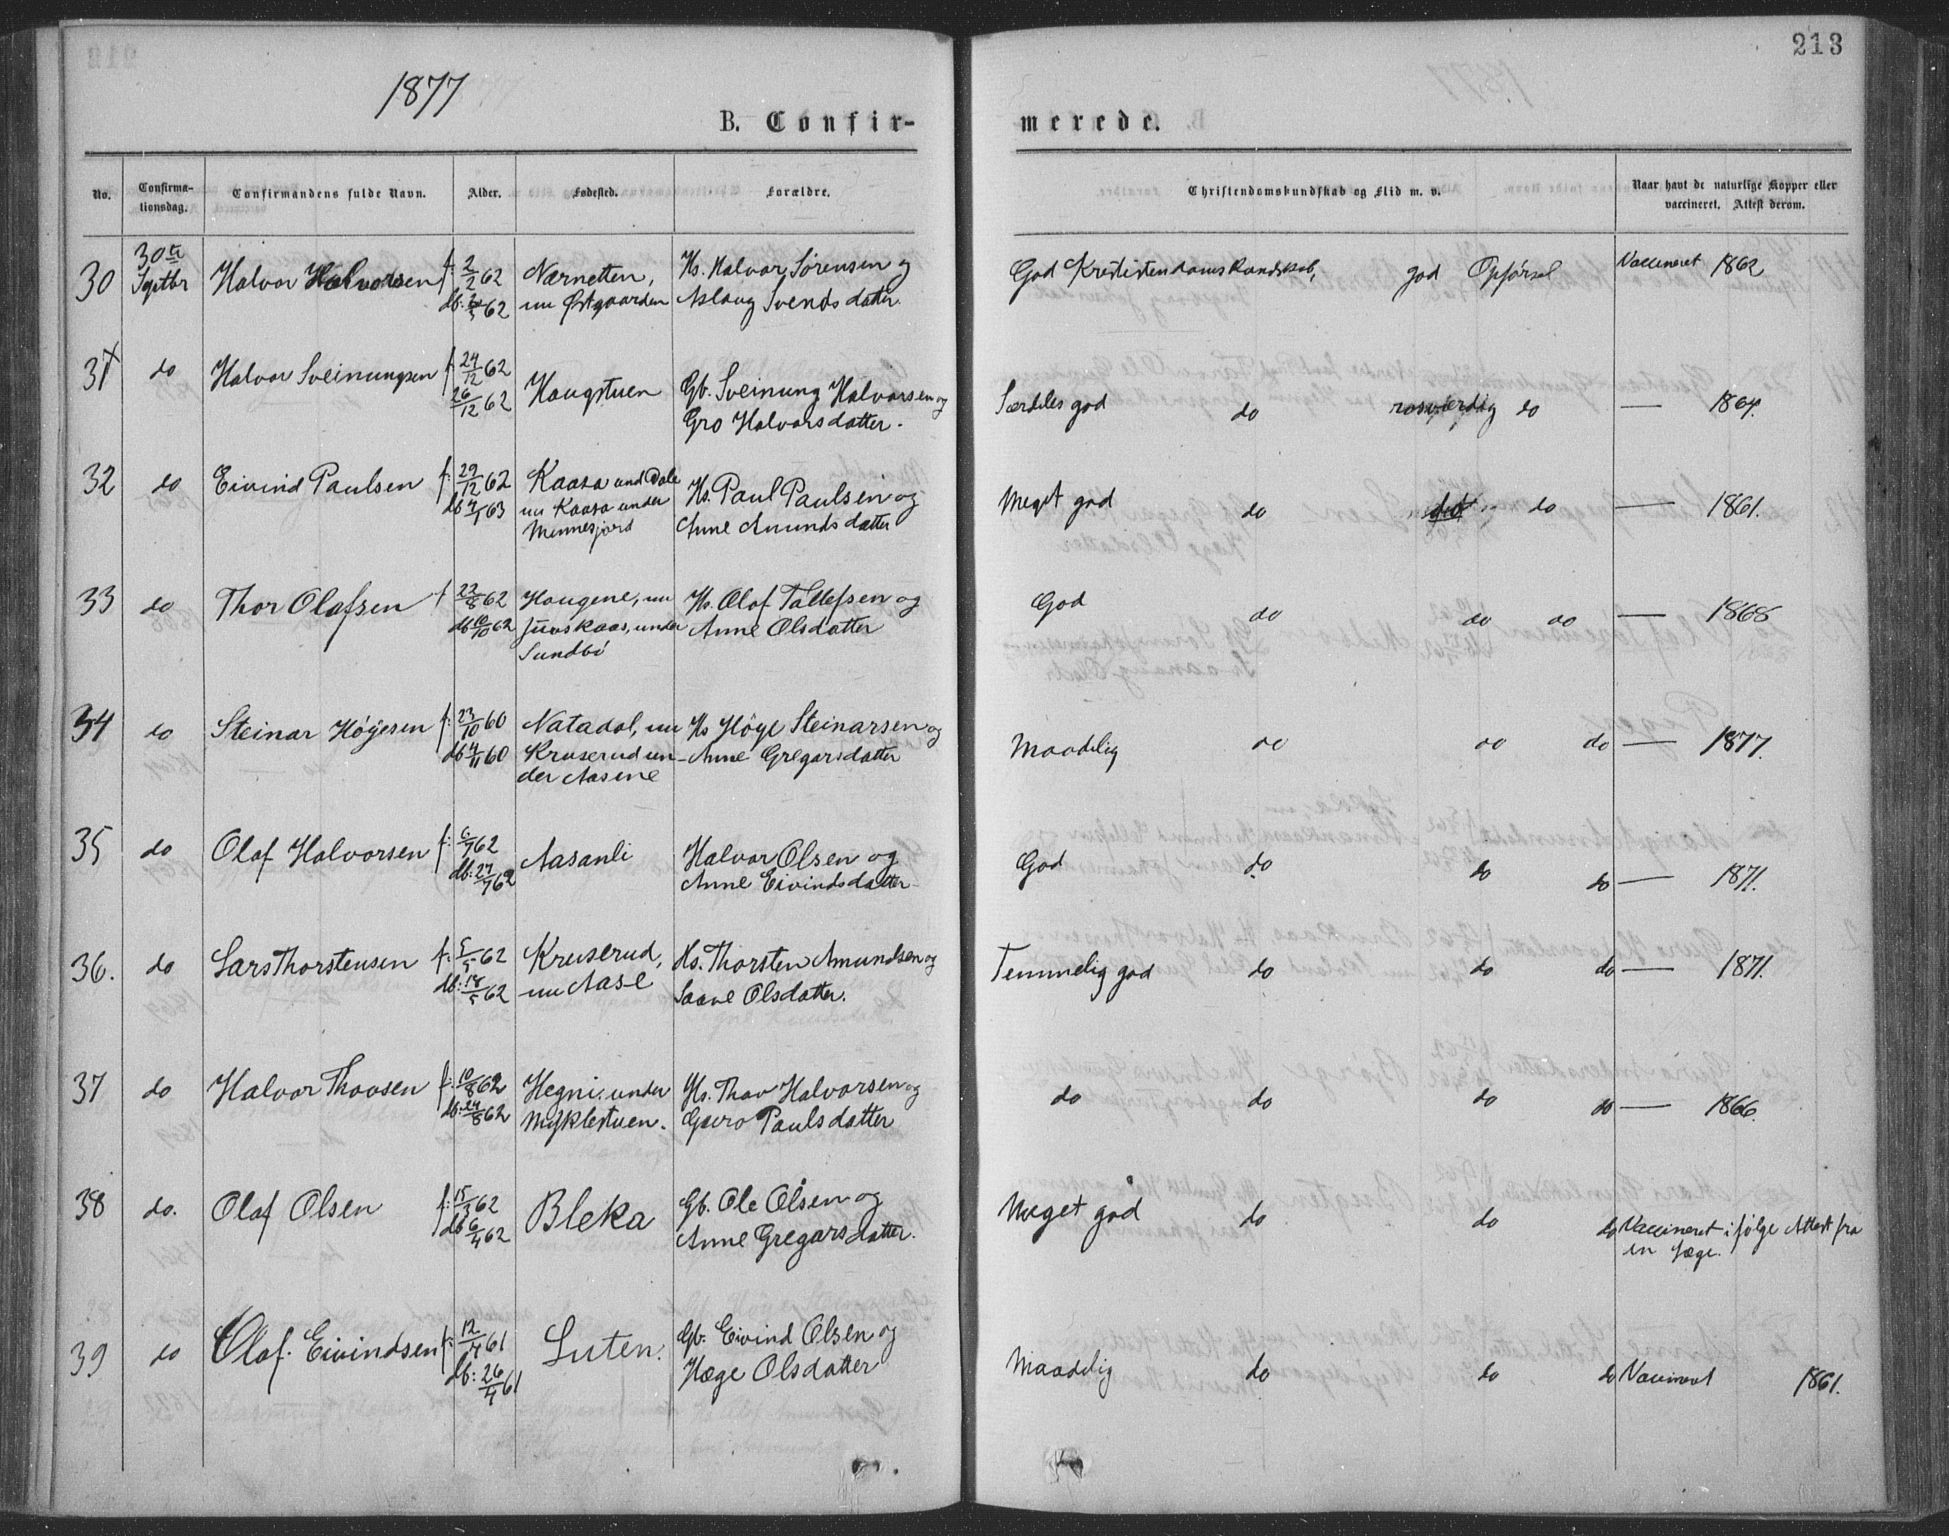 213
1877
B. Confir-
merede.
No.
Confirma-
tionsdag.
Confirmandens fulde Navn.
Alder.
Fødested.
Forældre.
Christendomskundskab og Flid m. v.
Naar havt de naturlige Kopper eller
vaccineret. Attest derom.
30 30te Septbr Halvor Halvorsen f: 2/2 62 Nærnetten, Hs. Halvor Sørensen og God Kristendomskundskab, god Opførsel Vaccineret 1862
db: 62 nu Østgaarden Aslaug Svendsdatter.
31 do Halvor Sveinungsen f 24/12 62 Haugstuen Gb. Sveinung Halvorsen og Særdeles god do rosværdig do — 1864.
26/12 62 Gro Halvorsdatter.
32 do Eivind Paulsen f: 29/12 62 Kaasa und Dale Hs. Paul Paulsen og Meget god do do — 1861.
db 4/1 63 nu Kaasa under Anne Amundsdatter
Mennesjord
33 do Thor Olafsen f 22/8 62 Haugene, nu Hs. Olof Tallefsen og God do do do — 1868
db 10/10 62 Juvskaas, under Anne Olsdatter
Sundbö
34 do Steinar Höÿesen f: 23/10 60 Natadal, nu Hs Höge Steinarsen og Maadelig do do do — 1877.
db 4/11 60 Kruserud un- Anne Gregarsdatter
der Aasene
35 do Olaf Halvorsen f: 6/7 62 Aasanli Halvor Olsen og God do do do — 1871.
db: 27/7 62 Anne Eivindsdatter
36. do Lars Thorstensen f: 5/5 62 Kruserud, Hs. Thorsten Amundsen og Temmelig god do do do — 1871.
db: 18/5 62 nu Aase Saave Olsdatter.
37 do Halvor Thovsen f: 10/8 62 Hegni, under Hs. Thov Halvorsen og do do do do — 1866.
db: 24/8 62 Mÿklestuen. Guro Paulsdatter
38 do. Olaf Olsen f: 15/3 62 Bleka Gb. Ole Olsen og Meget god do do do Vaccineret ifølge Attest fra
db 6/4 62 Anne Gregarsdatter. en Læge.
39 do Olaf. Eivindsen f: 12/4 61 Luten. Gb. Eivind Olsen og Maadelig do do do Vaccineret 1861.
db: 26/4 61 Hæge Olsdatter